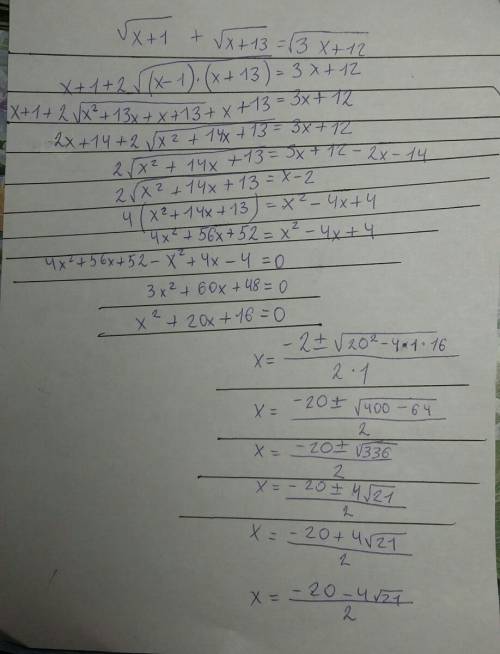 √x+1 + √x+13 = √3x+12
x+1+2√(x-1)·(x+13) = 3x+12
x+1+2√x²+13x+x+13+x+13=3x+12
2x+14+2√x²+14x+13=3x+12
2√x²+14x+13=3x+12-2x-14
2√x²+14x+13=x-2
4(x²+14x+13)=x²-4x+4
4x²+56x+52=x²-4x+4
4x²+56x+52-x²+4x-4=0
3x²+60x+48=0
x²+20x+16=0
x= -2±√20²-4*1·16 / 2·1
x= -20±√400-64 / 2
x= -20±√336 / 2
x= -20±4√21 / 2
x= -20+4√21 / 2
x= -20-4√21 / 2